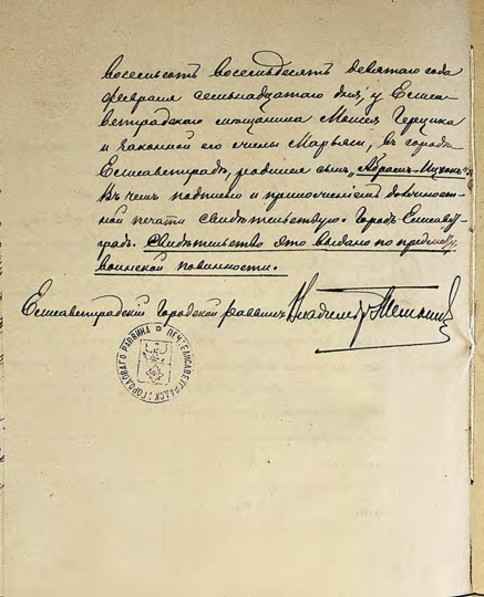 восемьсотъ восемьдесятъ девятаго года
февраля семьнадцатаго дня, у Елиса-
ветградскаго мѣщанина Моисея Герцика
и законной его жены Марьяси, въ городѣ
Елисаветградѣ, родился сынъ „Абрамъ-Ицхокъ“.
Въ чемъ подписью и приложеніемъ должност-
ной печати свидѣтельствую. Городъ Елисавет-
градъ. Свидѣтельство это выдано по предмету
воинской повинности.
Елисаветградскій Городской раввинъ Владимір
ПЕЧ. ЕЛИСАВЕТГРАДСК. ГОРОДОВАГО РАВВИНА